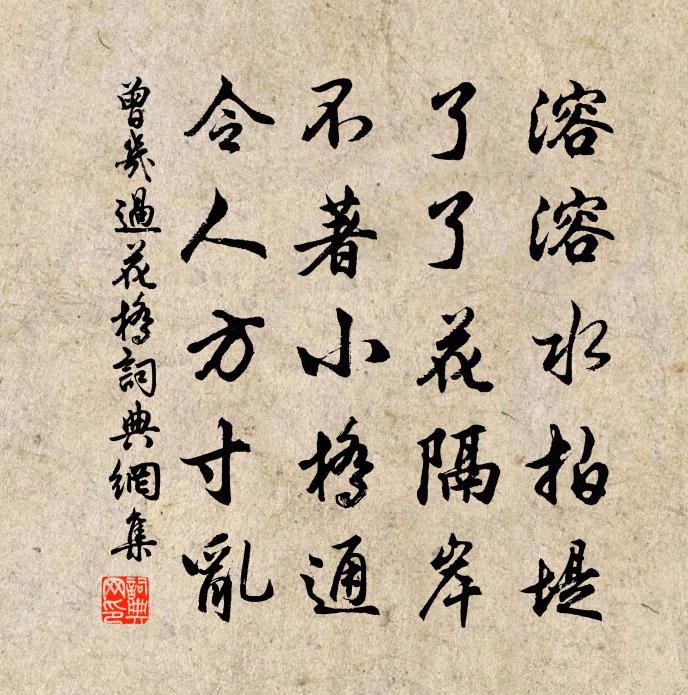 溶溶水拍堤
了了花隔岸
不著小橋通
令人方寸亂
曾幾過花橋詞典網集
詞典
网印